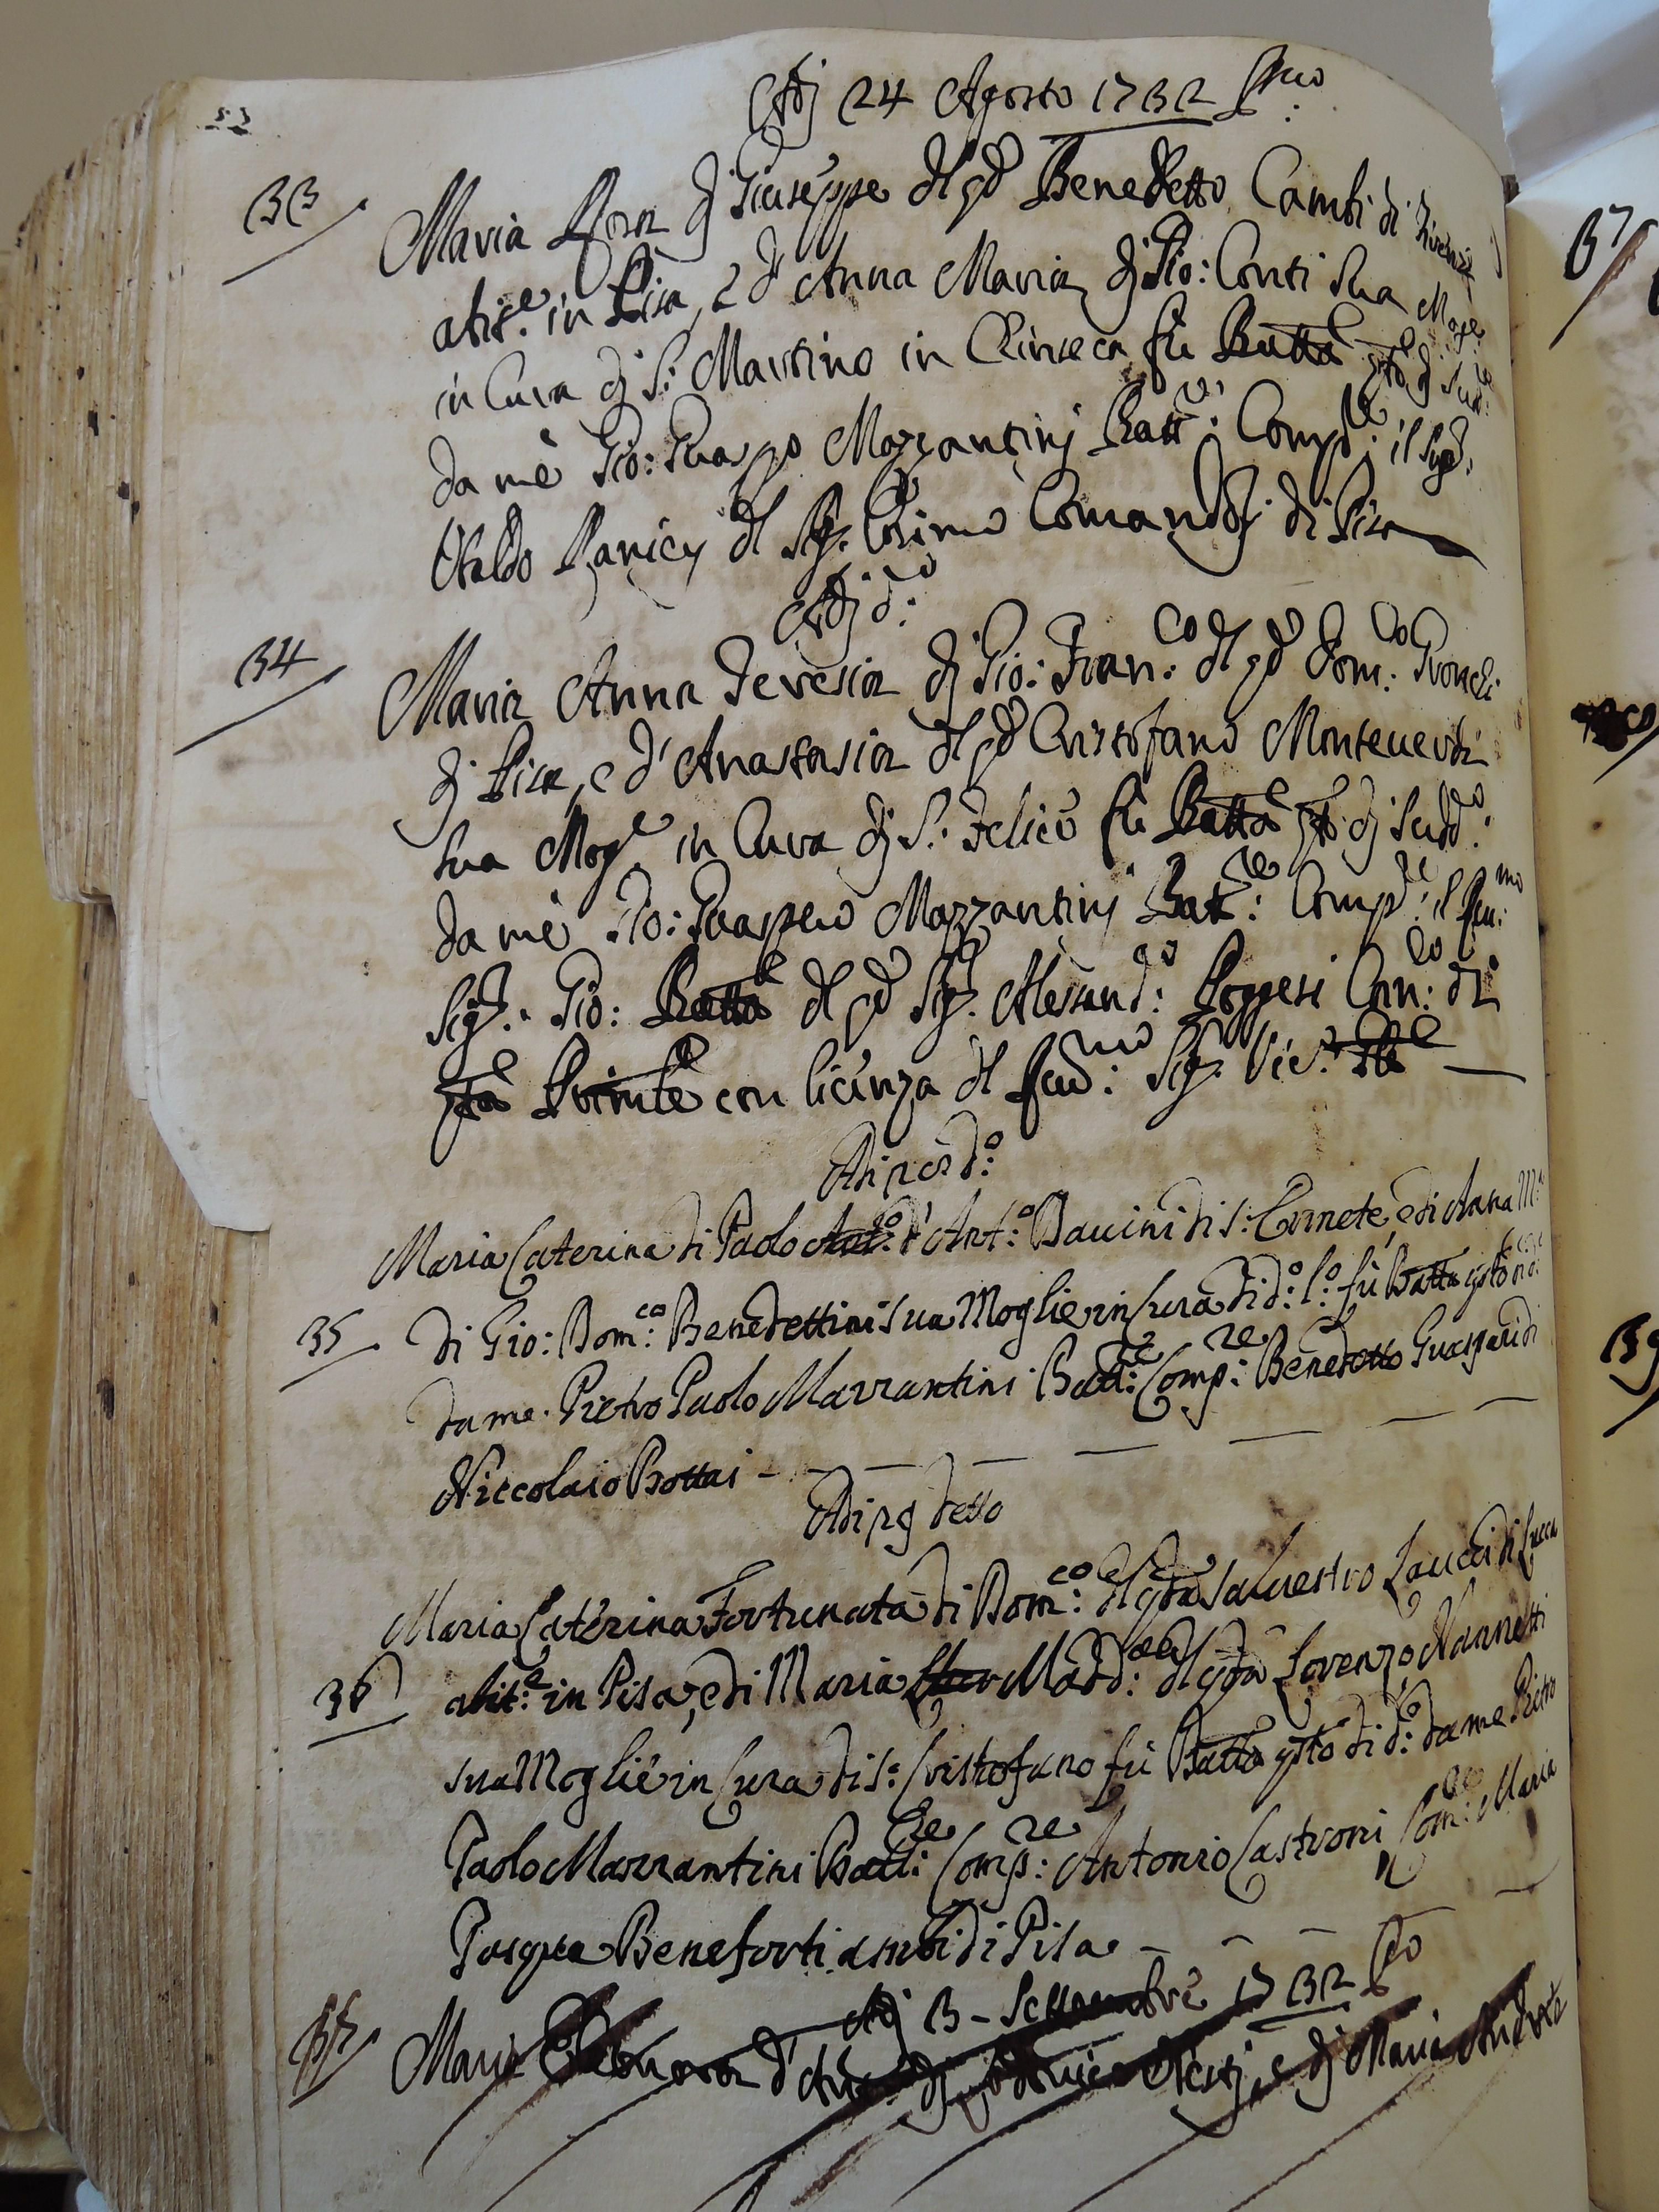 53
Adj 24 Agosto 1732 Pno
33 Maria Rosa dj Giuseppe del qd Benedetto Cambi di Firenze
abit.e in Pisa, e d'Anna Maria dj Gio: Conti sua Mog.e
in Cura dj S. Martino in Chinseca fù Batta qto dj Sud.
da mè Gio: Guaspo Mazzantinj Batt.re: Comp.re: il Sigr.
Ubaldo del Sig. Cosimo di Pisa
Adj d.o:
34 Maria Anna Teresia dj Gio: Fran:co del qd Dom:co Gronchi
dj Pisa, e d'Anastasia del qd Cristofano Monteverdi
sua Mog.e in Cura dj S. Felice fù Batta qto dj Sudd.o
da mè Gio: Guaspero Mazzantinj Bat.re: Comp.re: il Reu:mo
Sigr. Gio: Batta del qd Sigr. Alesand:ro Poggesi Can:co di
qta Primle con licenza del Reu:mo Sigr. Vic.
Adi d.o:
Maria Caterina di Paolo Ant.o: d'Ant:o Bavini di S: Ermete, e di Anna M.a
35 di Gio: Dom:co Benedettini sua Moglie in Cura di d:o l:o fù Batta qsto
da me Pietro Paolo Mazzantini Batt:re Comp:re Benedetto Guaspari di
Niccolaio Bottai
Adi 29 detto
Maria Caterina Fortunata di Dom:co del qdm Salvestro di Lucca
36 abit:e in Pisa, e di Maria Madd:na del qdm Lorenzo Nannetti
sua Moglie in Cura di S: Cristofano fù Batta qsto di d:o da me Pietro
Paolo Mazzantini Batt:re Comp:re Antonio Castroni Com:re Maria
Pasqua Beneforti ambi di Pisa
Adj 3 Settembre 1732 Pno
37 Maria Eleonora d' dj e dj Maria
37
39